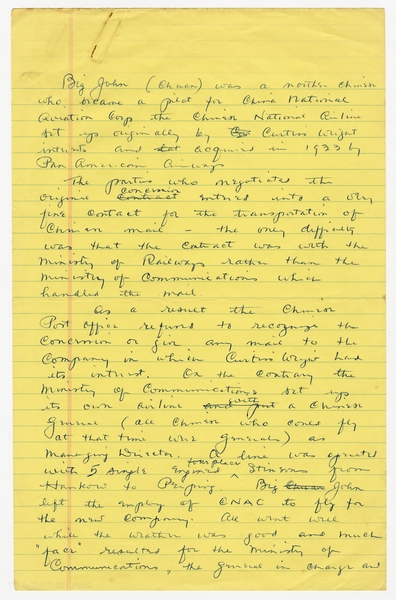 Big John (Chuan) was a northern Chinese
who became a pilot for China National
Aviation Corp the Chinese National Airline
set up originally by Cu Curtiss Wright
interests and sat acquired in 1933 by
Pan American Airways
The parties who negotiated the
original contract concession entered into a very
fine contract for the transportation of
Chinese mail - the only difficulty
was that the contract was with the
Ministry of Railways rather than the
Ministry of Communications which
handled the mail.
As a result the Chinese
Post office refused to recognize the
concession or give any mail to the
Company in which Curtiss Wright had
its interest. On the contrary the
Ministry of Communications set up
its own airline and put with a Chinese
General (all Chinese who could fly
at that time were Generals) as
Managing Director. A line was operated
with 5 single Engined four place Stinsons from
Hankow to Peiping. Big Chuan John
left the employ of CNAC to fly for
the new Company. All went well
while the weather was good and much
"face" resulted for the Ministry of
Communications, the general in charge and